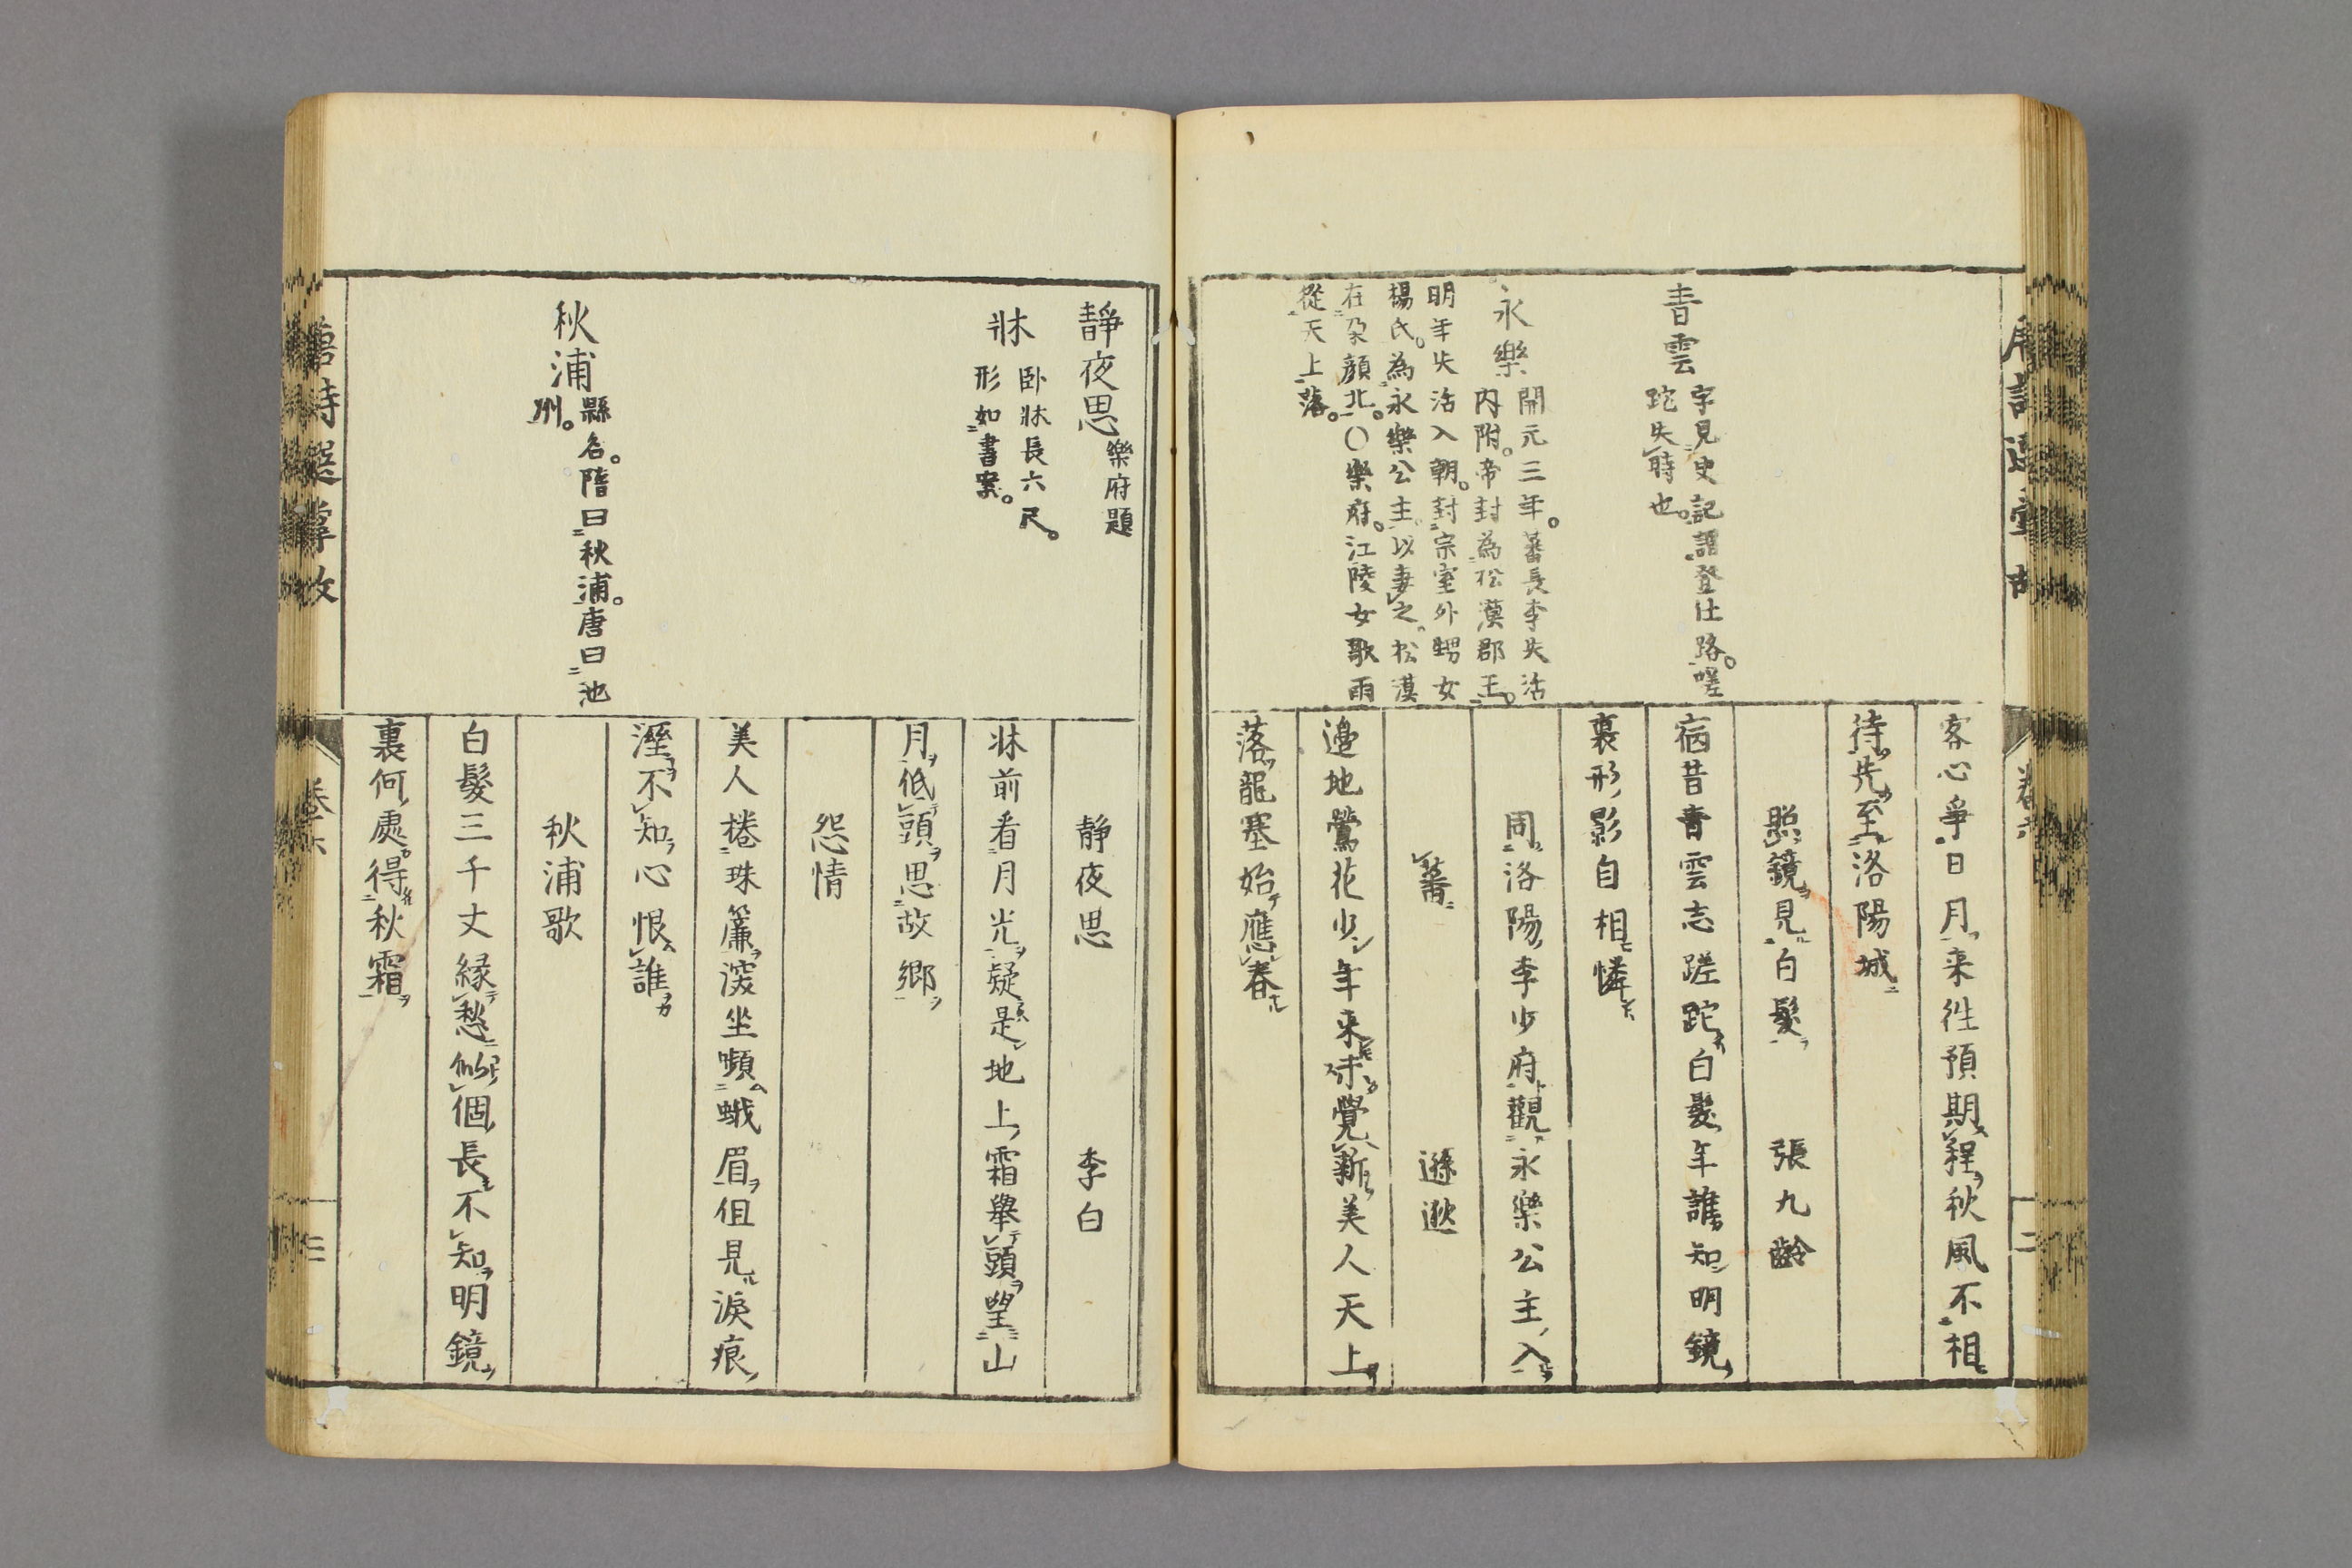 青雲
字見史記謂登仕路。嗟
跎失時也。
永樂
開元三年。蕃長李失活
内附。帝封為松漠郡王。
明年失活入朝。封宗室外甥女
楊氏。為永樂公主。以妻之。松漠
在朶顔北。〇樂府。江陵女歌雨
從天上落。
客心爭日月来徃預期程秋風不相
待先至洛陽城
照鏡見白髮 張九齡
宿昔青雲志蹉跎白髮年誰知明鏡
裏形影自相憐
同洛陽李少府觀永樂公主入
蕃 遜逖
邉地鶯花少年来未覺新美人天上
落龍塞始應春
靜夜思
樂府題
牀
卧牀長六尺。
形如書案。
秋浦
縣名。隋曰秋浦。唐曰池
州。
靜夜思 李白
牀前看月光疑是地上霜舉頭望山
月低頭思故鄉
怨情
美人捲珠簾深坐嚬蛾眉但見淚痕
溼不知心恨誰
秋浦歌
白髮三千丈縁愁似個長不知明鏡
裏何處得秋霜
唐詩選掌故
卷六
三